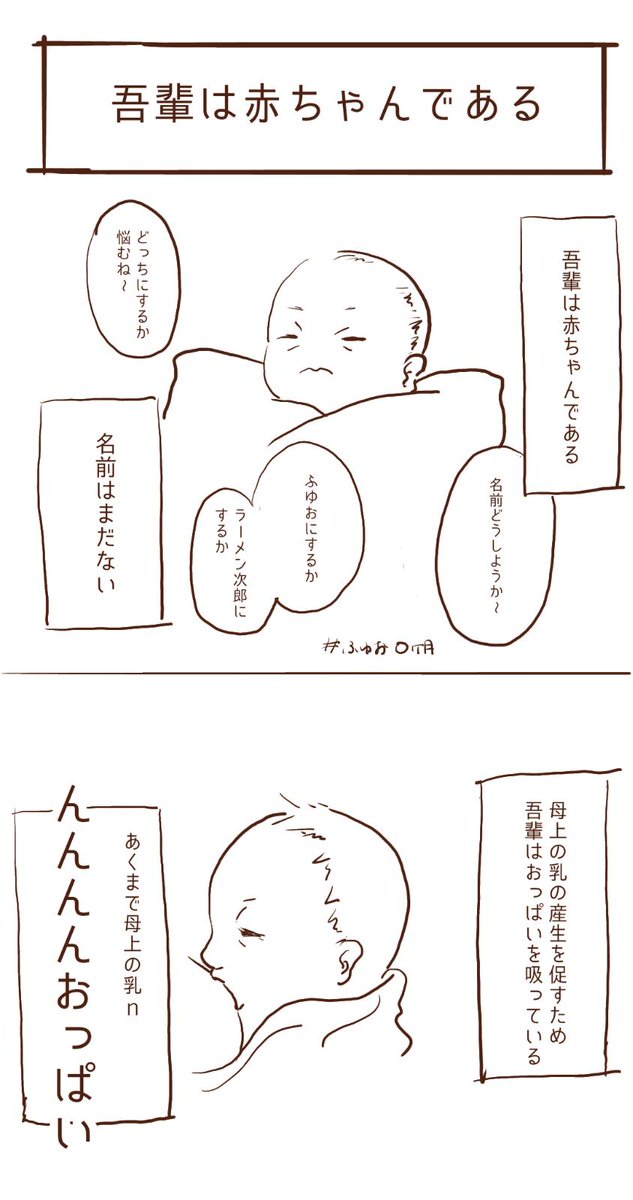 吾輩は赤ちゃんである
吾輩は赤ちゃんである
名前どうしようか～
ふゆおにするか
ラーメン次郎に
するか
どっちにするか
悩むね～
名前はまだない
#ふゆお0ヶ月
母上の乳の産生を促すため
吾輩はおっぱいを吸っている
あくまで母上の乳n
んんんんおっぱい